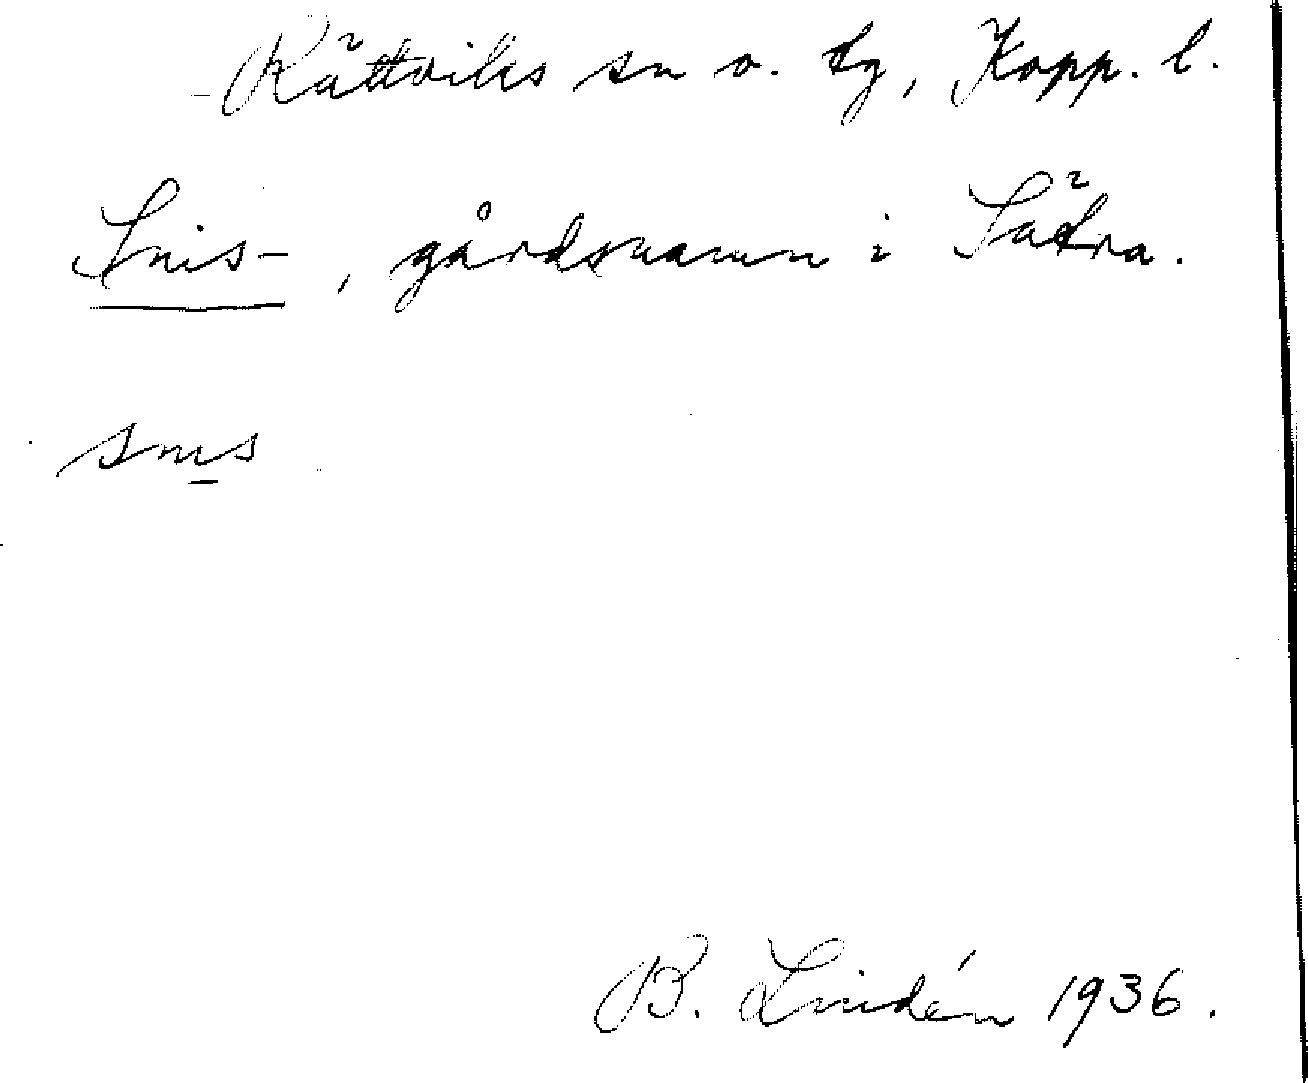 Rättviks sn o. tg, Kopp. l.
Snis-, gårdsnamn i Sätra.
sms
B. Lindén 1936.